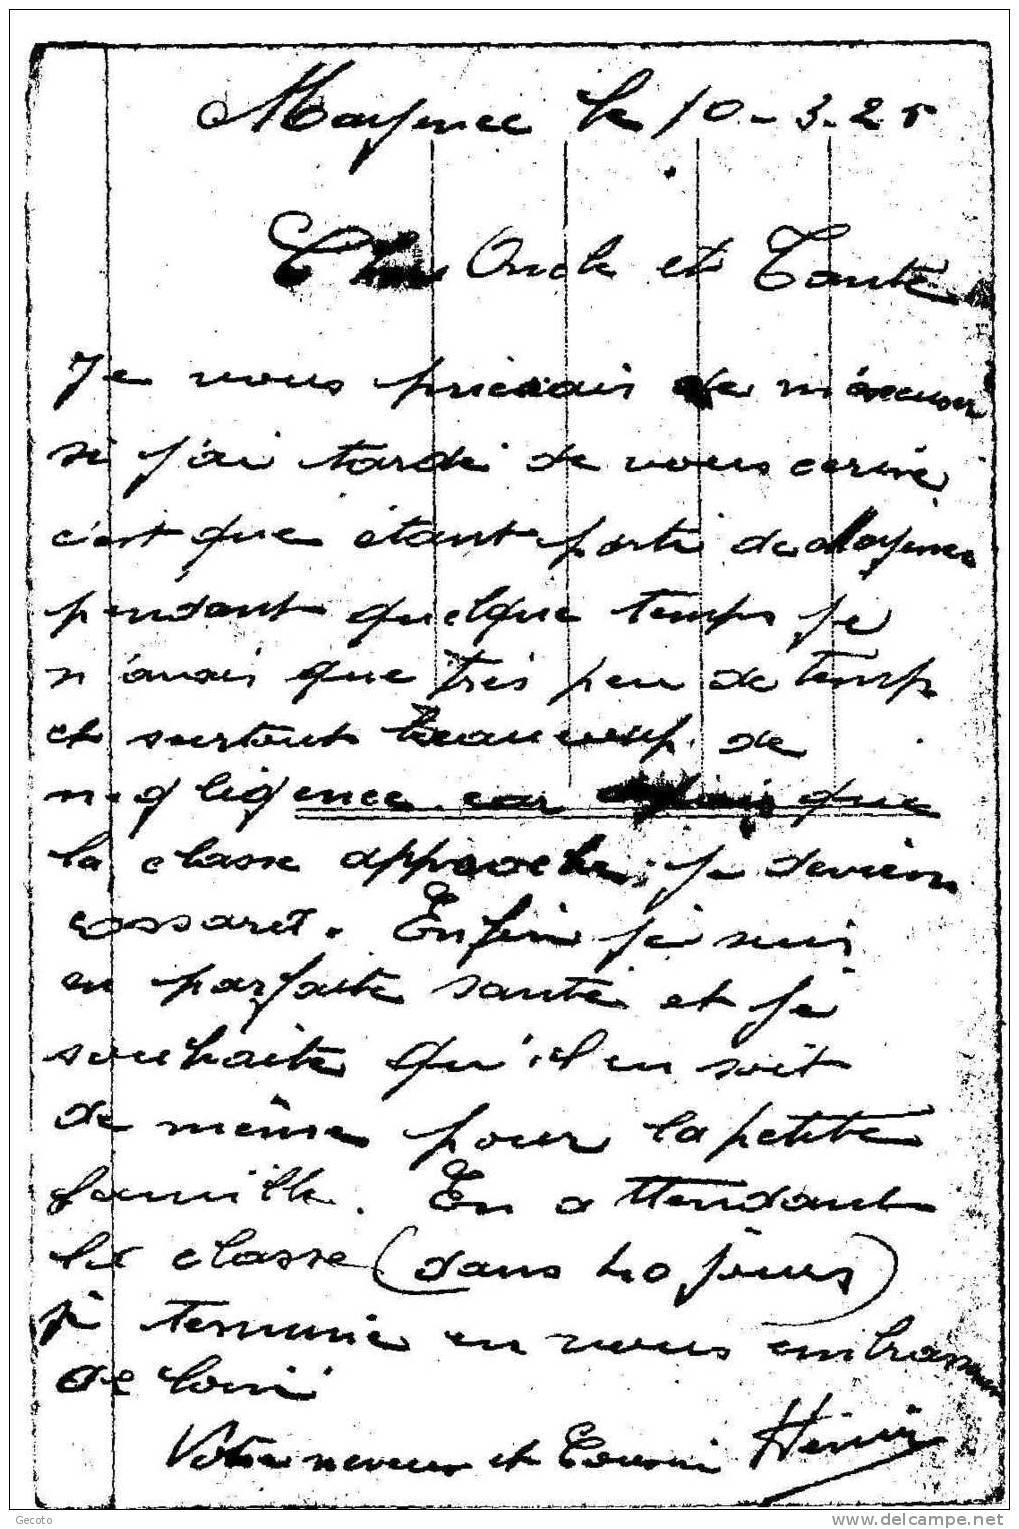 Mayence le 10-3-25
Chers Oncle et Tante
Je vous prierais de m'excuser
si j'ai tardé de vous ecrire
c'est que étant parti de Mayence
pendant quelque temps je
n'avais que très peu de temp
et surtout beaucoup de
negligence car depuis que
la classe approche, je deviens
cossard. Enfin je suis
en parfaite santé et je
souhaite qu'il en soit
de même pour la petite
famille. En attendant
la classe (dans 40 jours)
je termine en vous embrassan
de loin
Votre neveu et Cousin
Gecoto
www.delcampe.net